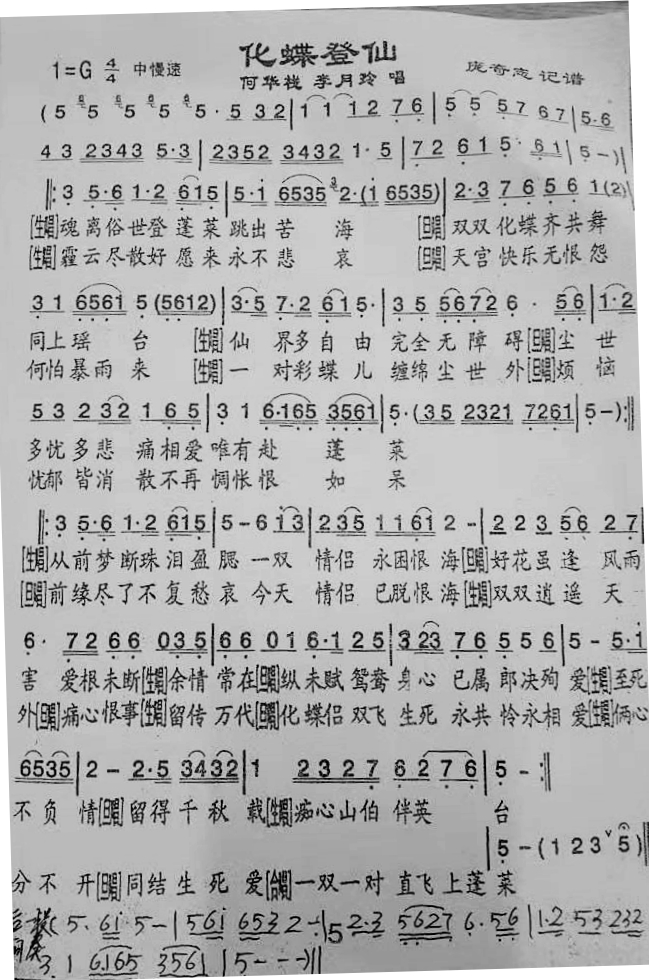 化蝶登仙
1=G 4/4 中慢速 何华栈 李月玲 唱 庞奇志 记谱
( 5 5 5 5 5· 5 32 | 1 1 12 76 | 5 5 57 67 | 5·6
43 2343 5·3 | 2352 3432 1·5 | 72 61 5· 61 | 5 - )
‖: 3 5·6 1·2 615 | 5·1 6535 2·(1 6535) | 2·3 76 56 1(2)
[生唱]魂离俗世登蓬莱跳出苦海 [旦唱]双双化蝶齐共舞
[生唱]霾云尽散好愿来永不悲哀 [旦唱]天宫快乐无恨怨
31 6561 5 (5612) | 3·5 7·2 61 5· | 35 5672 6· 56 | 1·2
同上瑶台 [生唱]仙界多自由完全无障碍[旦唱]尘世
何怕暴雨来 [生唱]一对彩蝶儿缠绵尘世外[旦唱]烦恼
53 232 165 | 31 6·165 3561 | 5·(35 2321 7261 | 5-) :‖
多忧多悲痛相爱唯有赴蓬莱
忧郁皆消散不再惆怅恨如呆
‖: 3 5·6 1·2 615 | 5 - 6 i3 | 235 1161 2 - | 2 23 56 27
[生唱]从前梦断珠泪盈腮一双情侣永困恨海[旦唱]好花虽逢风雨
[旦唱]前缘尽了不复愁哀今天情侣已脱恨海[生唱]双双逍遥天
6· 72 66 035 | 66 01 6·1 25 | 3 23 76 55 6 | 5 - 5·1
害爱根未断[生唱]余情常在[旦唱]纵未赋鸳鸯身心已属郎决殉爱[生唱]至死
外[旦唱]痛心恨事[生唱]留传万代[旦唱]化蝶侣双飞生死永共怜永相爱[生唱]俩心
6535 | 2 - 2·5 3432 | 1 2327 6276 | 5 - :‖
不负情[旦唱]留得千秋载[生唱]痴心山伯伴英台
5 - (123 5)‖
分不开[旦唱]同结生死爱[合唱]一双一对直飞上蓬莱
(5· 61 5 - | 561 653 2 - | 5 2·3 5627 6·56 | 1·2 53 232
3·1 6165 3561 | 5 - - -)‖